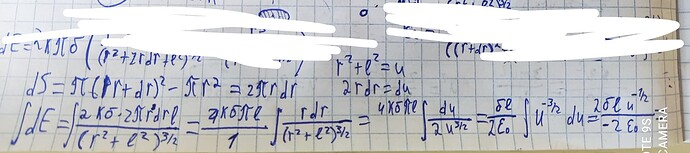 dE=2kπσ(
(r²+2rdr+ℓ²)
((r+dr)²
r²+ℓ²=u
dS=π(r+dr)²-πr²=2πrdr
2rdr=du
∫dE=∫2kσ·2πrdrℓ/(r²+ℓ²)^3/2=4kσπℓ/1∫rdr/(r²+ℓ²)^3/2=4kσπℓ∫du/2u^3/2=σℓ/2ε₀∫u^-3/2du=2σℓu^-1/2/-2ε₀
TE 9S
CAMERA